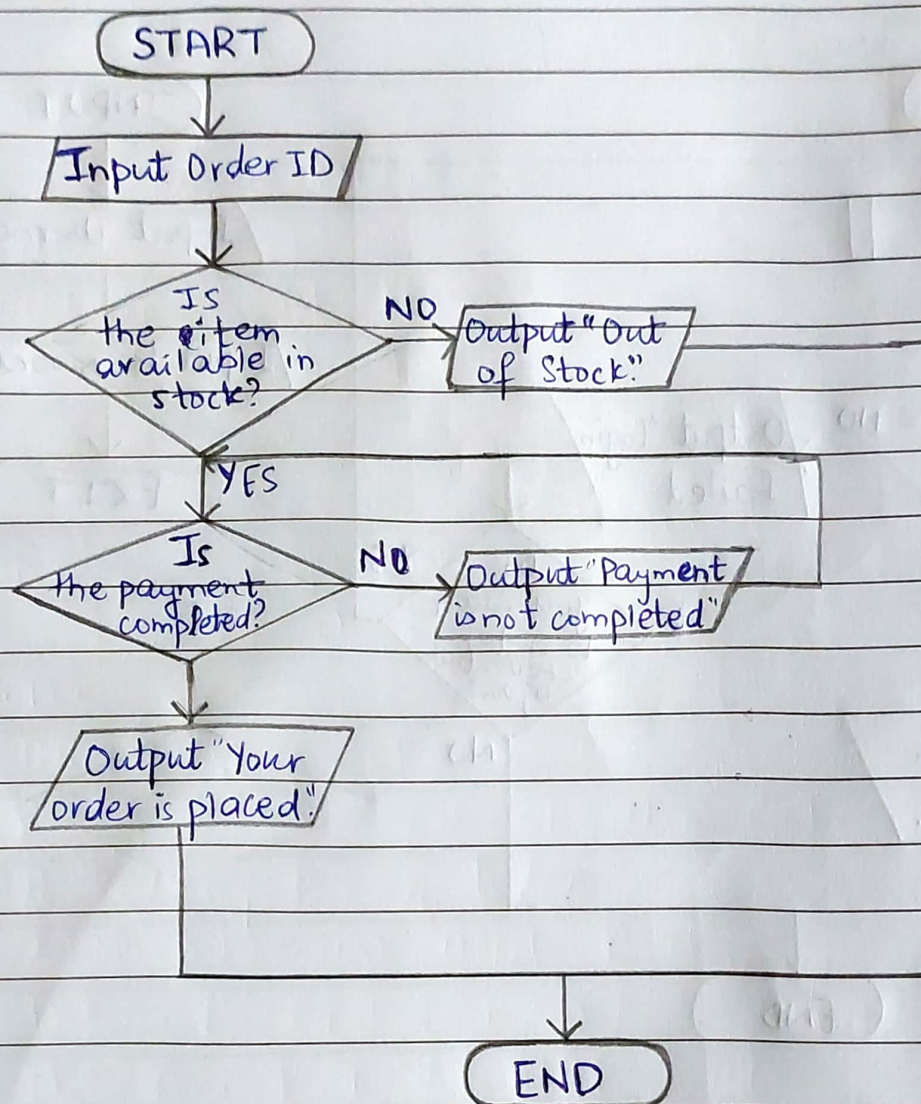 START
Input Order ID
Is
the item
available in
stock?
NO
Output "Out
of Stock."
YES
Is
the payment
completed?
NO
Output "Payment
is not completed"
Output "Your
order is placed."
END